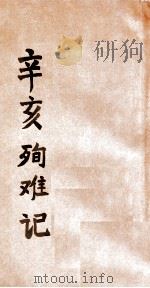 辛亥殉难记
mtoou.info